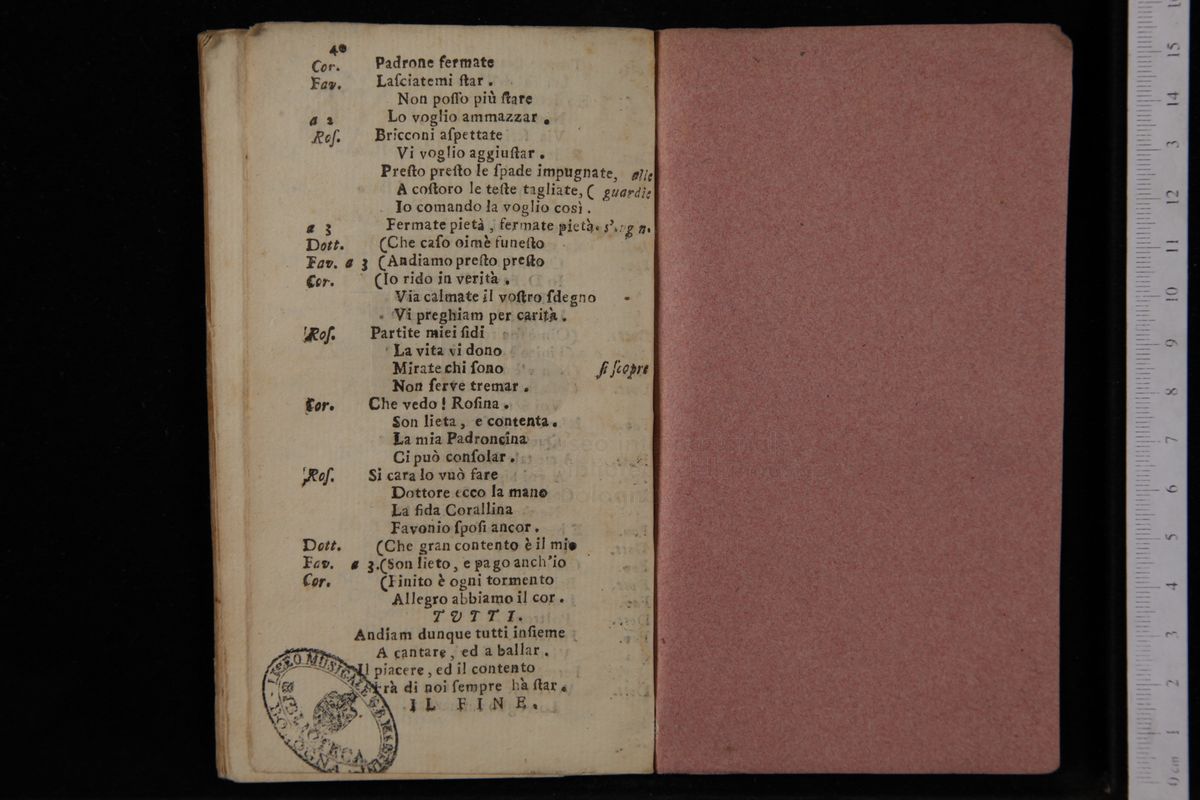 40
Cor. Padrone fermate
Fav. Laſciatemi ſtar .
Non poſſo più ſtare
a 2 Lo voglio ammazzar .
Roſ. Bricconi aſpettate
Vi voglio aggiuſtar .
Preſto preſto le ſpade impugnate, alle
A coſtoro le teſte tagliate, ( guardie
Io comando la voglio così .
a 3 Fermate pietà , fermate pietà.
Dott. (Che caſo oimè funeſto
Fav. a 3 (Andiamo preſto preſto
Cor. (Io rido in verità .
Via calmate il voſtro ſdegno
Vi preghiam per carità .
Roſ. Partite miei fidi
La vita vi dono
Mirate chi ſono ſi ſcopre
Non ſerve tremar .
Cor. Che vedo ! Roſina .
Son lieta , e contenta .
La mia Padroncina
Ci può conſolar .
Roſ. Si cara lo vuò fare
Dottore ecco la mano
La fida Corallina
Favonio ſpoſi ancor .
Dott. (Che gran contento è il mio
Fav. a 3.(Son lieto , e pago anch'io
Cor. (Finito è ogni tormento
Allegro abbiamo il cor .
TUTTI.
Andiam dunque tutti inſieme
A cantare , ed a ballar .
Il piacere , ed il contento
trà di noi ſempre hà ſtar .
IL FINE.
LICEO MUSICALE G.B. MARTINI
BIBLIOTECA
BOLOGNA
15
14
13
12
11
10
9
8
7
6
5
4
3
2
1
0 cm